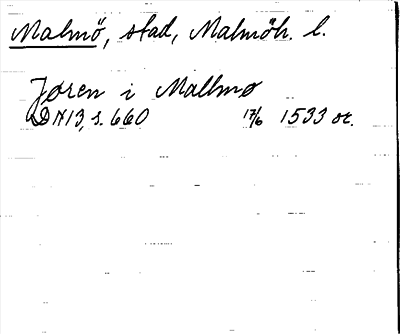 Malmö, stad, Malmöh. l.
Jøren i Mallmø
DN13, s. 660 17/6 1533 or.